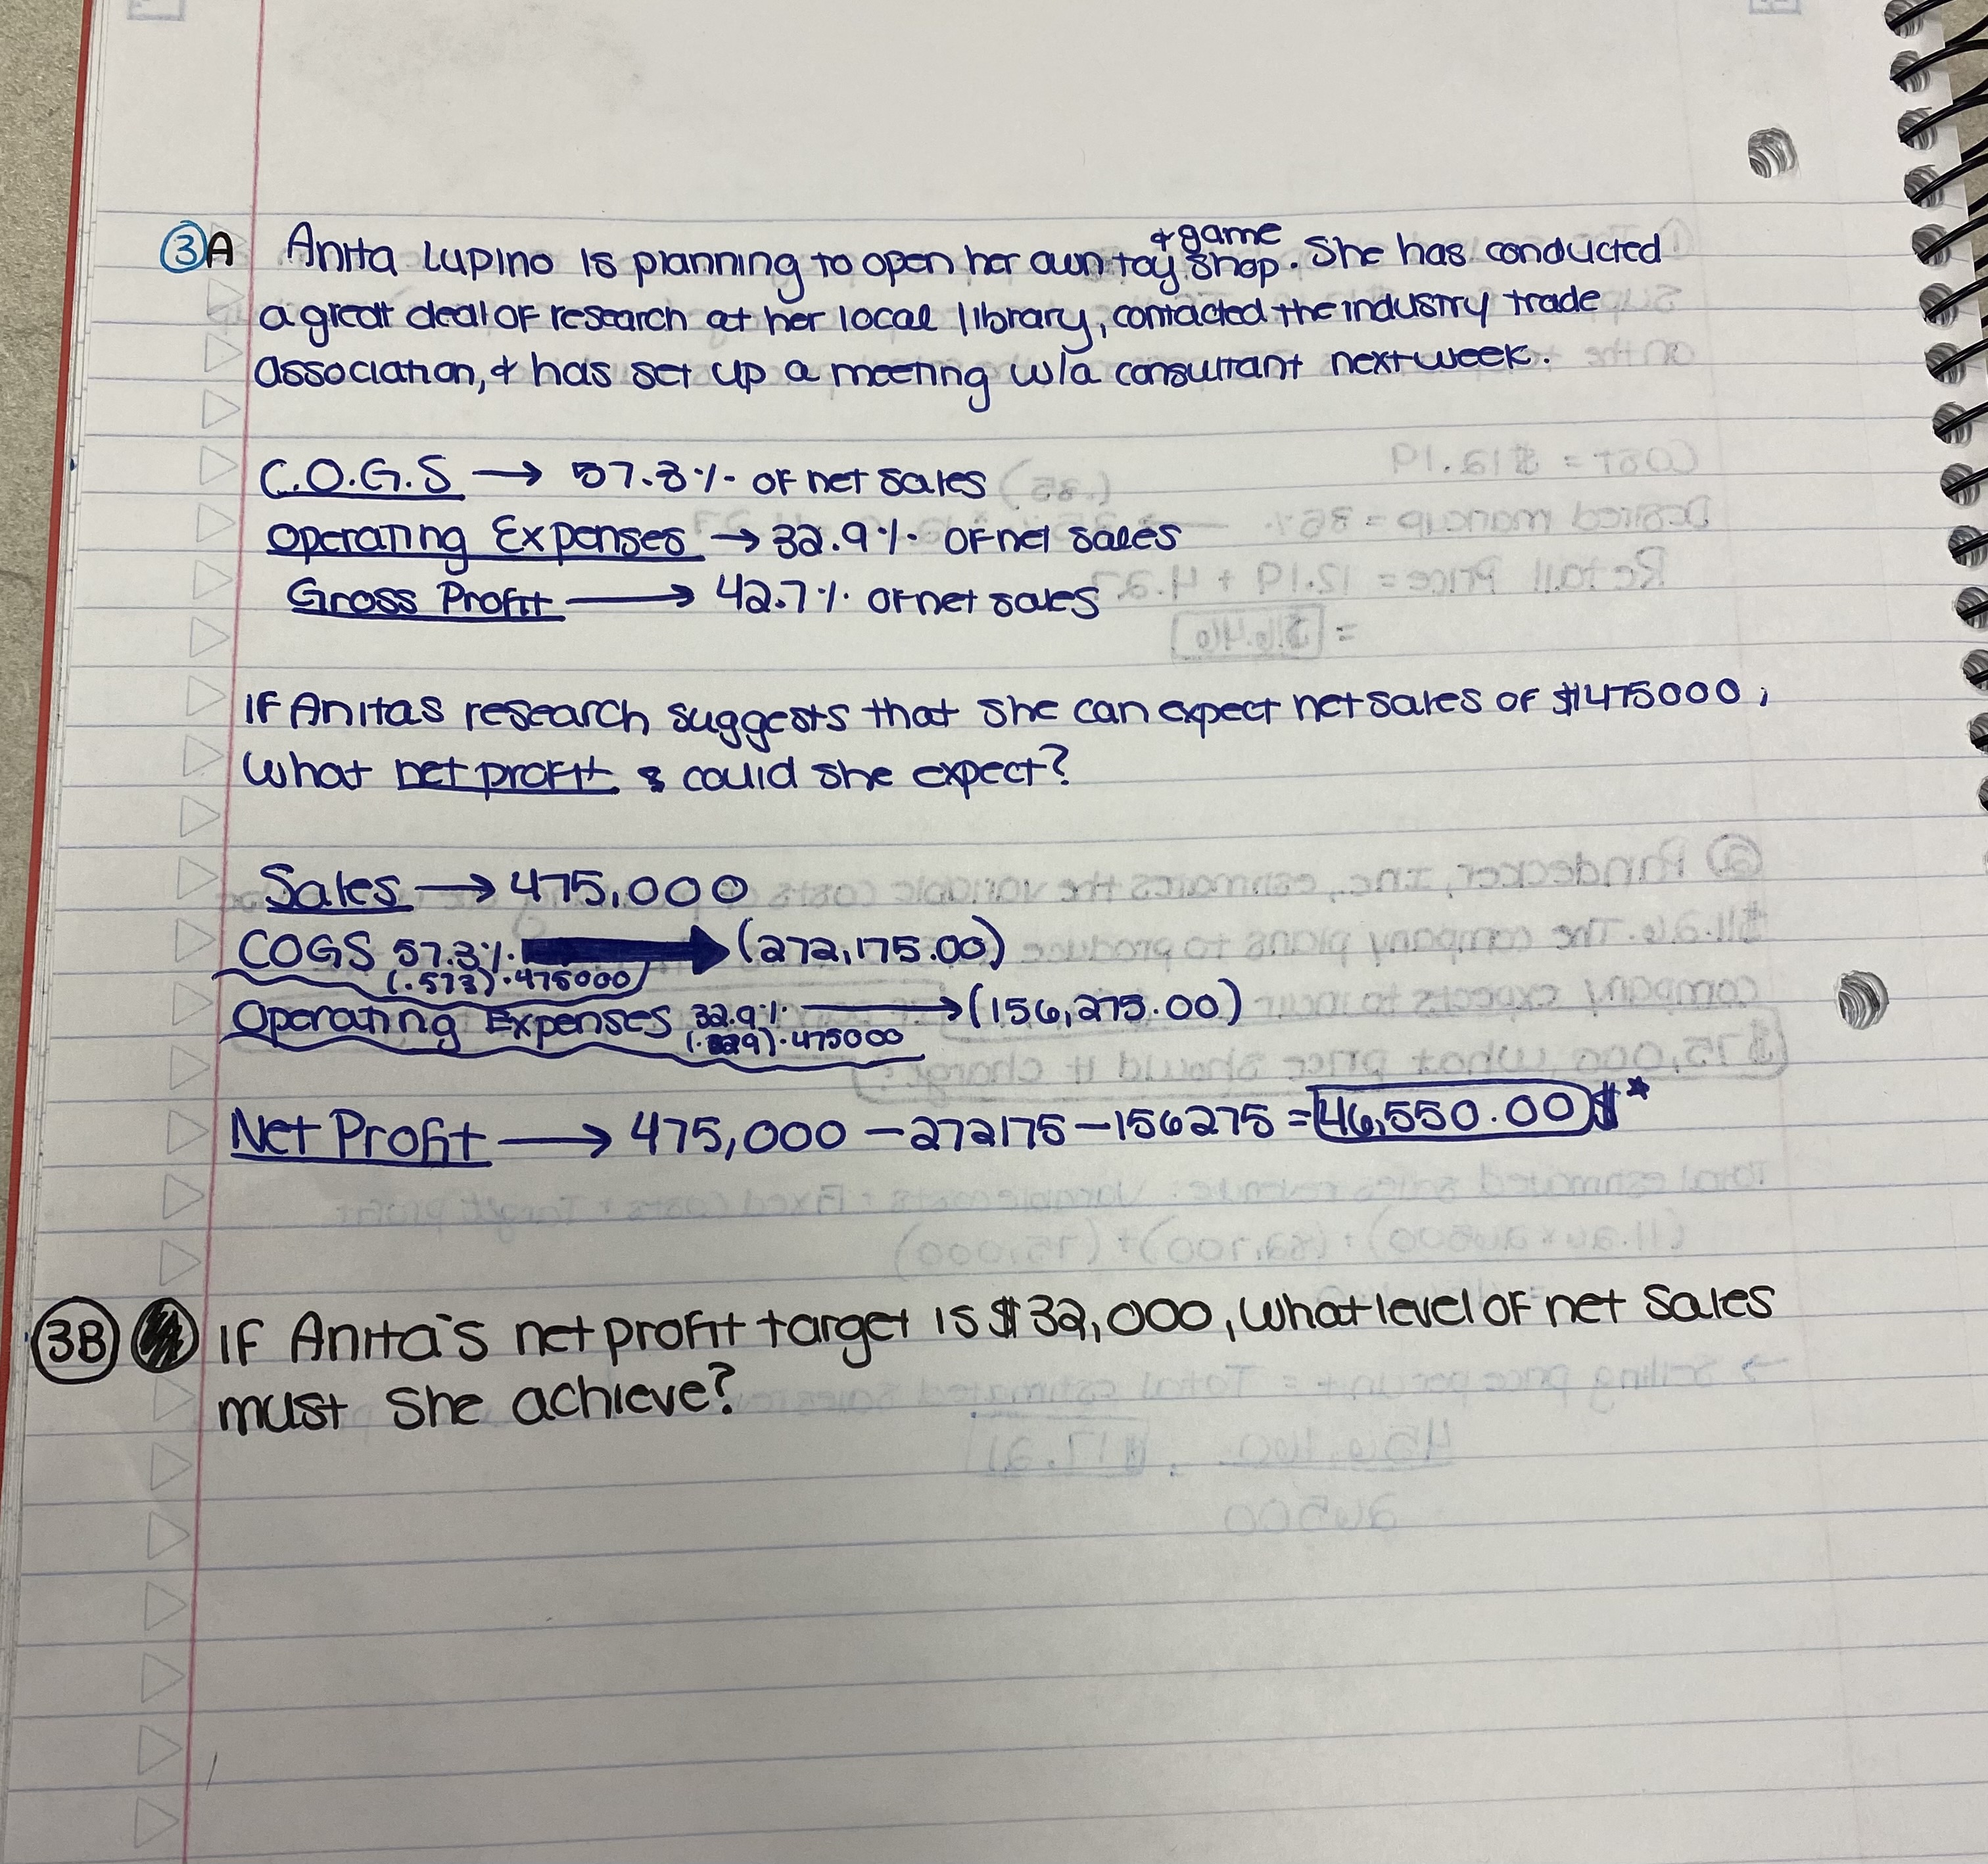 ③A Anita Lupino is planning to open her own toy & game shop. She has conducted
a great deal of research at her local library, contacted the industry trade
association, & has set up a meeting w/a consultant next week.
C.O.G.S → 57.3% of net sales
Operating Expenses → 32.9% of net sales
Gross Profit → 42.7% of net sales
If Anitas research suggests that she can expect net sales of $475000,
What net profit could she expect?
Sales → 475,000
COGS 57.3% → (272,175.00)
(.573)·475000
Operating Expenses 32.9% → (156,275.00)
(.329)·475000
Net Profit → 475,000 − 272175 − 156275 = 46,550.00 $*
3B If Anita's net profit target is $32,000, what level of net sales
must she achieve?